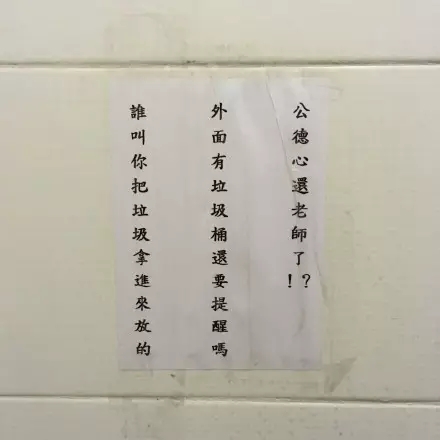 公德心還老師了!?
外面有垃圾桶還要提醒嗎
誰叫你把垃圾拿進來放的